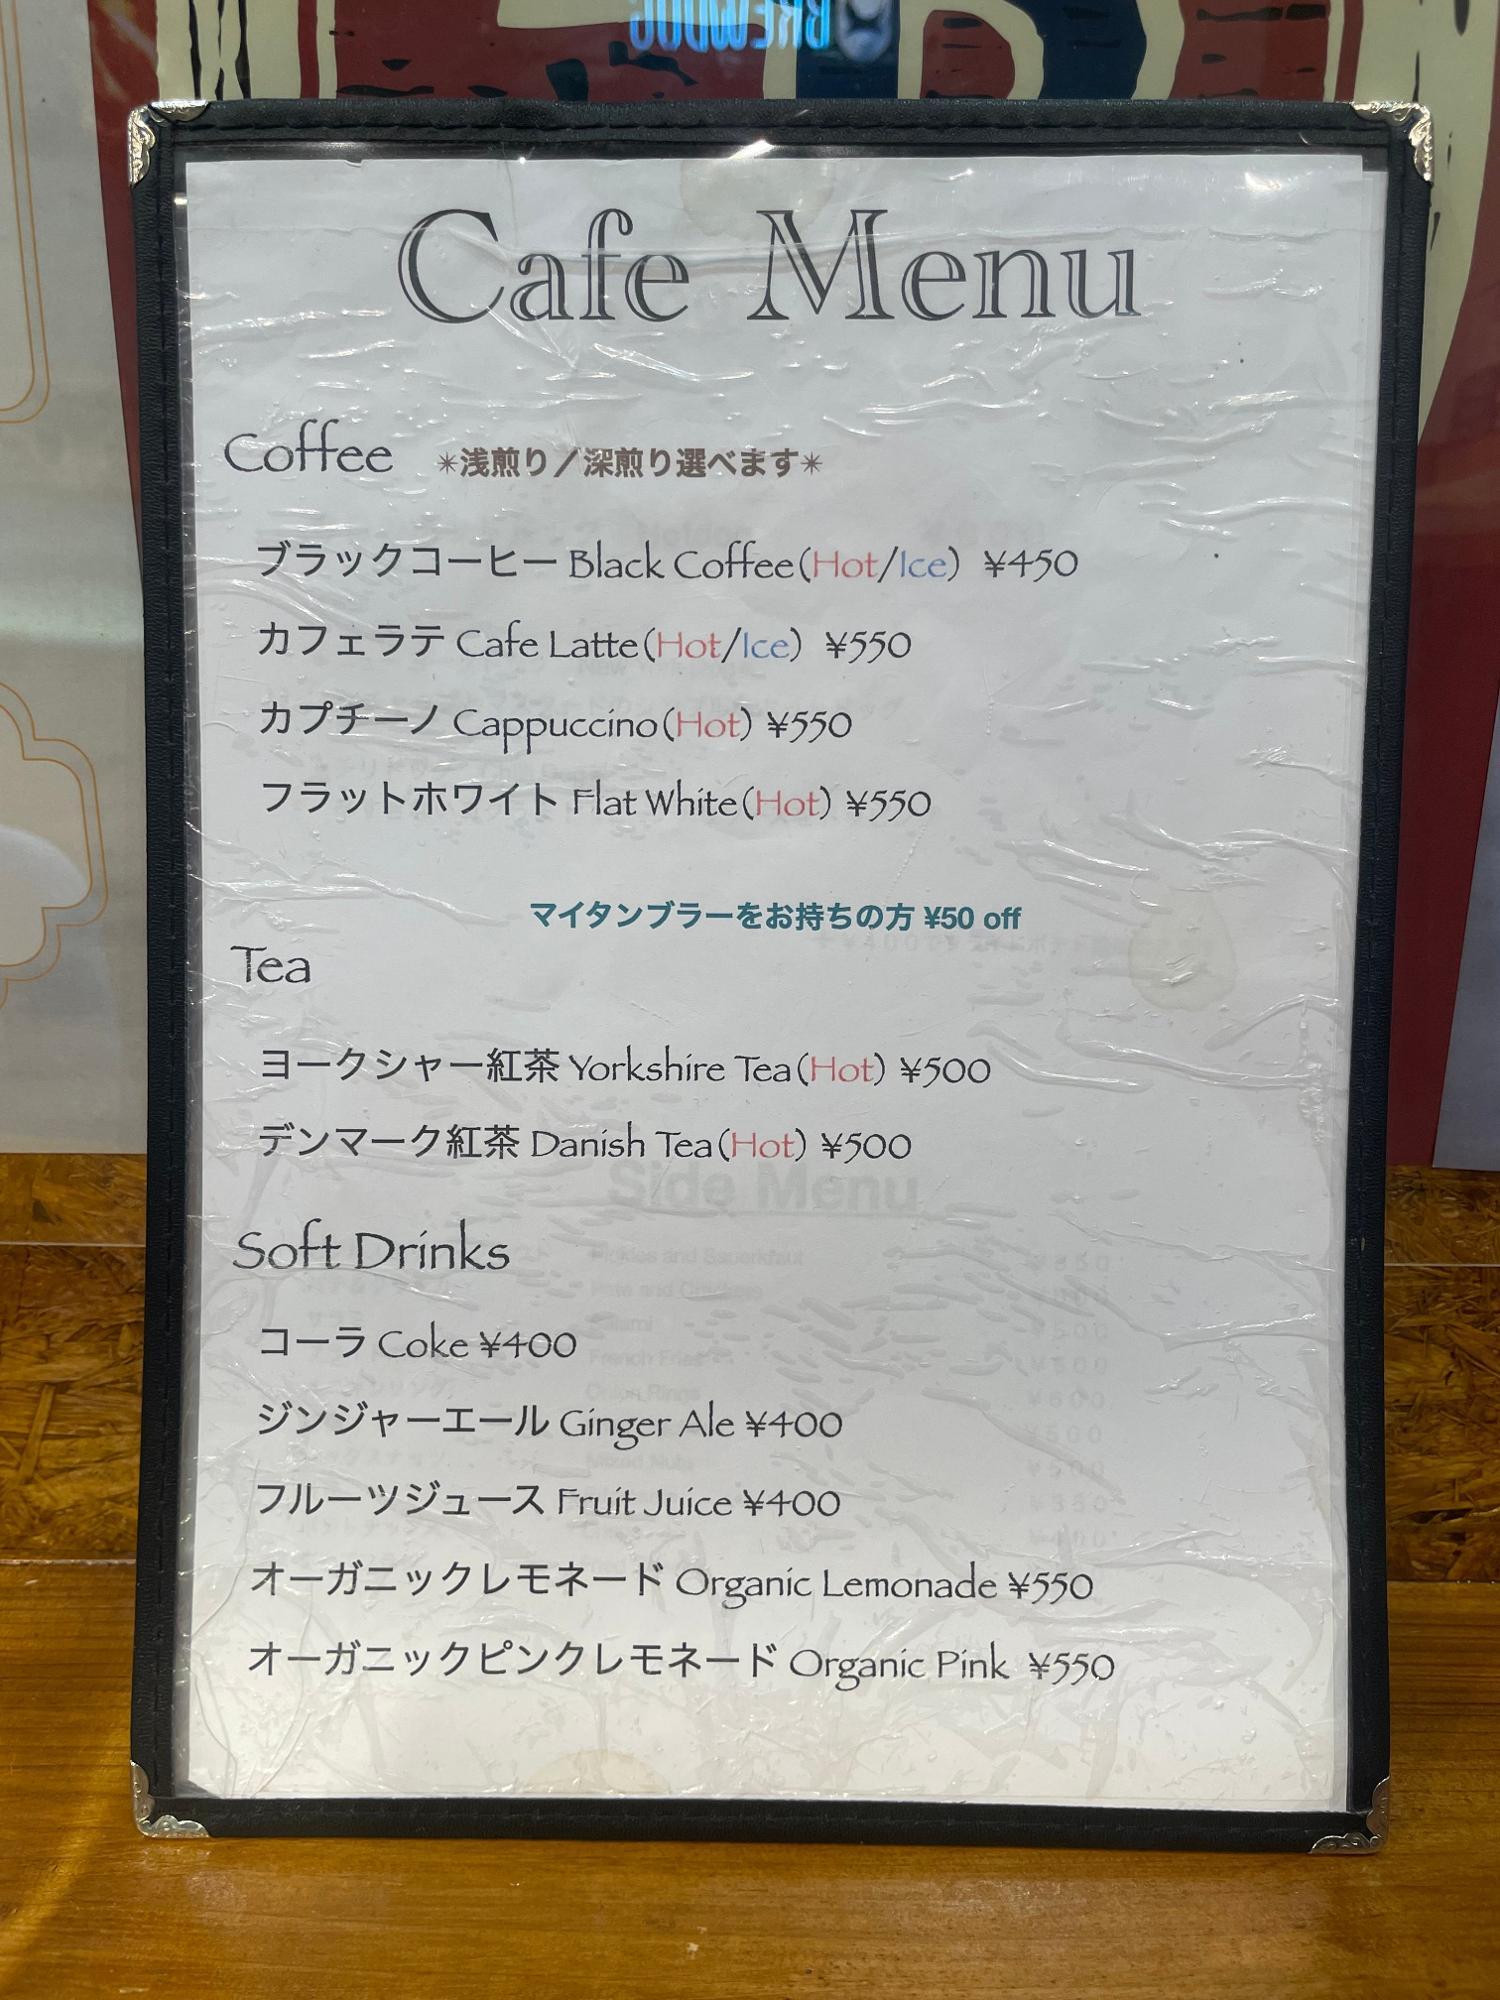 BREWDOG
Cafe Menu
Coffee ✴浅煎り／深煎り選べます✴
ブラックコーヒー Black Coffee(Hot/Ice) ¥450
カフェラテ Cafe Latte(Hot/Ice) ¥550
カプチーノ Cappuccino(Hot) ¥550
フラットホワイト Flat White(Hot) ¥550
マイタンブラーをお持ちの方 ¥50 off
Tea
ヨークシャー紅茶 Yorkshire Tea(Hot) ¥500
デンマーク紅茶 Danish Tea(Hot) ¥500
Side Menu
Soft Drinks
Pickles and Sauerkraut
コーラ Coke ¥400
French Fries
Onion Rings
ジンジャーエール Ginger Ale ¥400
Mixed Nuts
フルーツジュース Fruit Juice ¥400
オーガニックレモネード Organic Lemonade ¥550
オーガニックピンクレモネード Organic Pink ¥550